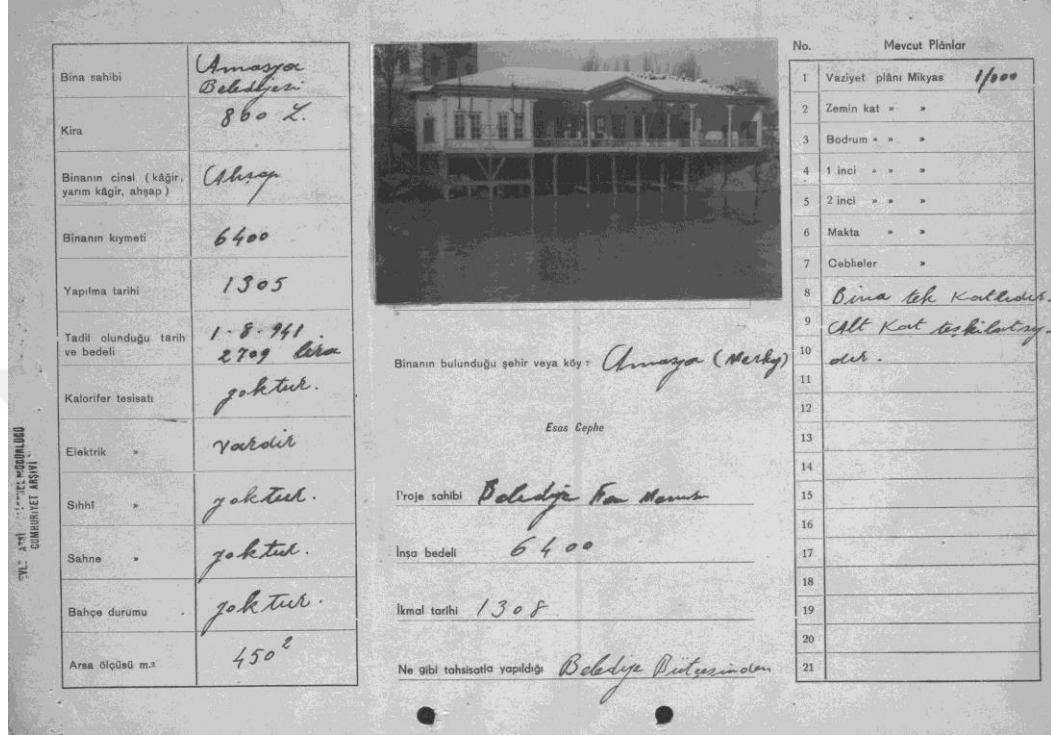 Bina sahibi Amasya
Belediyesi
Kira 860 L.
Binanın cinsi (kâğir,
yarım kâgir, ahşap) Ahşap
Binanın kıymeti 6400
Yapılma tarihi 1305
Tadil olunduğu tarih
ve bedeli 1-8-941
2709 lira
Kalorifer tesisatı yoktur.
Elektrik » vardir
Sıhhî » yoktur.
Sahne » yoktur.
Bahçe durumu yoktur.
Arsa ölçüsü m.² 450²
CUMHURİYET ARŞİVİ
Binanın bulunduğu şehir veya köy : Amasya (Merkez)
Esas Cephe
Proje sahibi Belediye Fen
İnşa bedeli 6400
İkmal tarihi 1308
Ne gibi tahsisatla yapıldığı Belediye Bütçesinden
No. Mevcut Plânlar
1 Vaziyet plânı Mikyas 1/000
2 Zemin kat » »
3 Bodrum » » »
4 1 inci » » »
5 2 inci » » »
6 Makta » »
7 Cebheler »
8 Bina tek Katlıdır.
9 Alt Kat teşkilatsız-
10 dır.
11
12
13
14
15
16
17
18
19
20
21